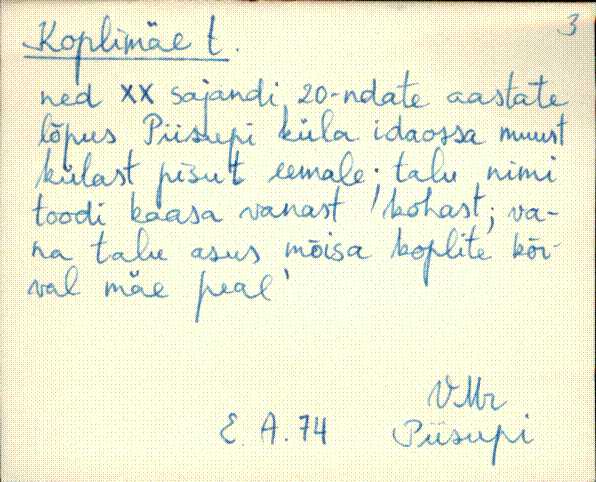 3
Koplimäe t.
ned XX sajandi 20-ndate aastate
lõpus Piisupi küla idaossa muust
külast pisut eemale; talu nimi
toodi kaasa vanast kohast; va-
na talu asus mõisa koplite kõr-
val mäe peal
VMr
E. A. 74 Piisupi